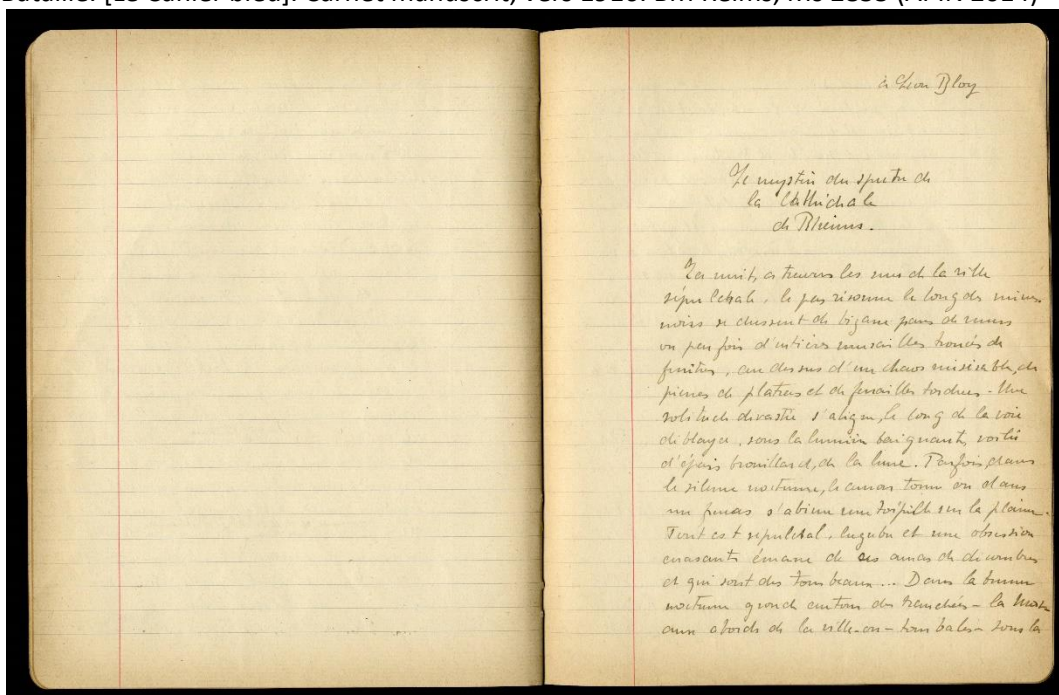 Bataille. [Le Cahier bleu]. Carnet manuscrit, vers 1916. BM Reims, Ms 2856 (AMR 2014)
à Léon Bloy
Le mystère du spectre de
la Cathédrale
de Rheims.
La nuit, à travers les rues de la ville
sépulcrale, le pas résonne le long des mines
noires se dressent de bizarre pans de murs
ou parfois d'entières murailles trouées de
fenêtres, au dessus d'un chaos misérable, de
pierres de platras et de ferrailles tordues - Une
solitude dévastée s'aligne, le long de la voie
déblayée, sous la lumière baignante, voilée
d'épais brouillard, de la lune. Parfois, dans
le silence nocturne, le canon tonne ou dans
un fracas s'abîme une torpille sur la plaine.
Tout est sépulcral, lugubre et une obsession
écrasante émane de ces amas de décombres
et qui sont des tombeaux... Dans la brume
nocturne gronde autour des tranchées - la mort
aux abords de la ville - on - tombales - sous la